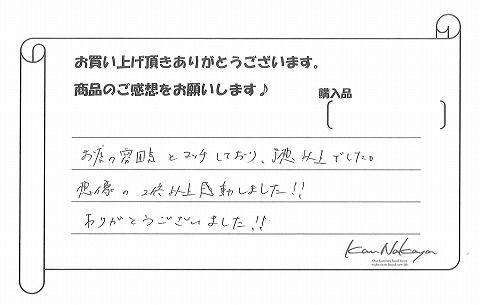 お買い上げ頂きありがとうございます。
商品のご感想をお願いします♪
購入品
お店の雰囲気とマッチしており、予想以上でした。
想像の2倍以上感動しました!!
ありがとうございました!!
Kan Nakaya